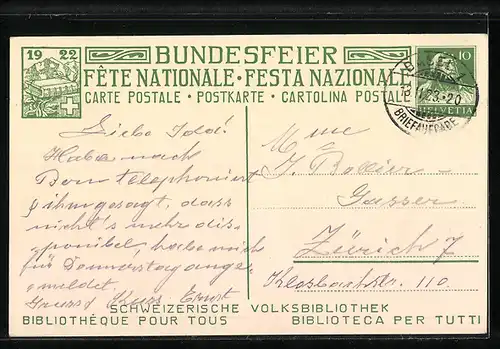 1922
BUNDESFEIER
FÊTE NATIONALE · FESTA NAZIONALE
CARTE POSTALE · POSTKARTE · CARTOLINA POSTALE
10
HELVETIA
BRIEFAUFGABE
Liebe Ida!
Habe nach
Bern telephoniert
ihm gesagt, dass
nicht's mehr dis-
ponibel, habe mich
für Donnerstag ange-
meldet.
Gruss & Kuss Ernst
Mme
J.
Gasser
Zürich 7
Klosbachstr. 110
SCHWEIZERISCHE VOLKSBIBLIOTHEK
BIBLIOTHÈQUE POUR TOUS BIBLIOTECA PER TUTTI